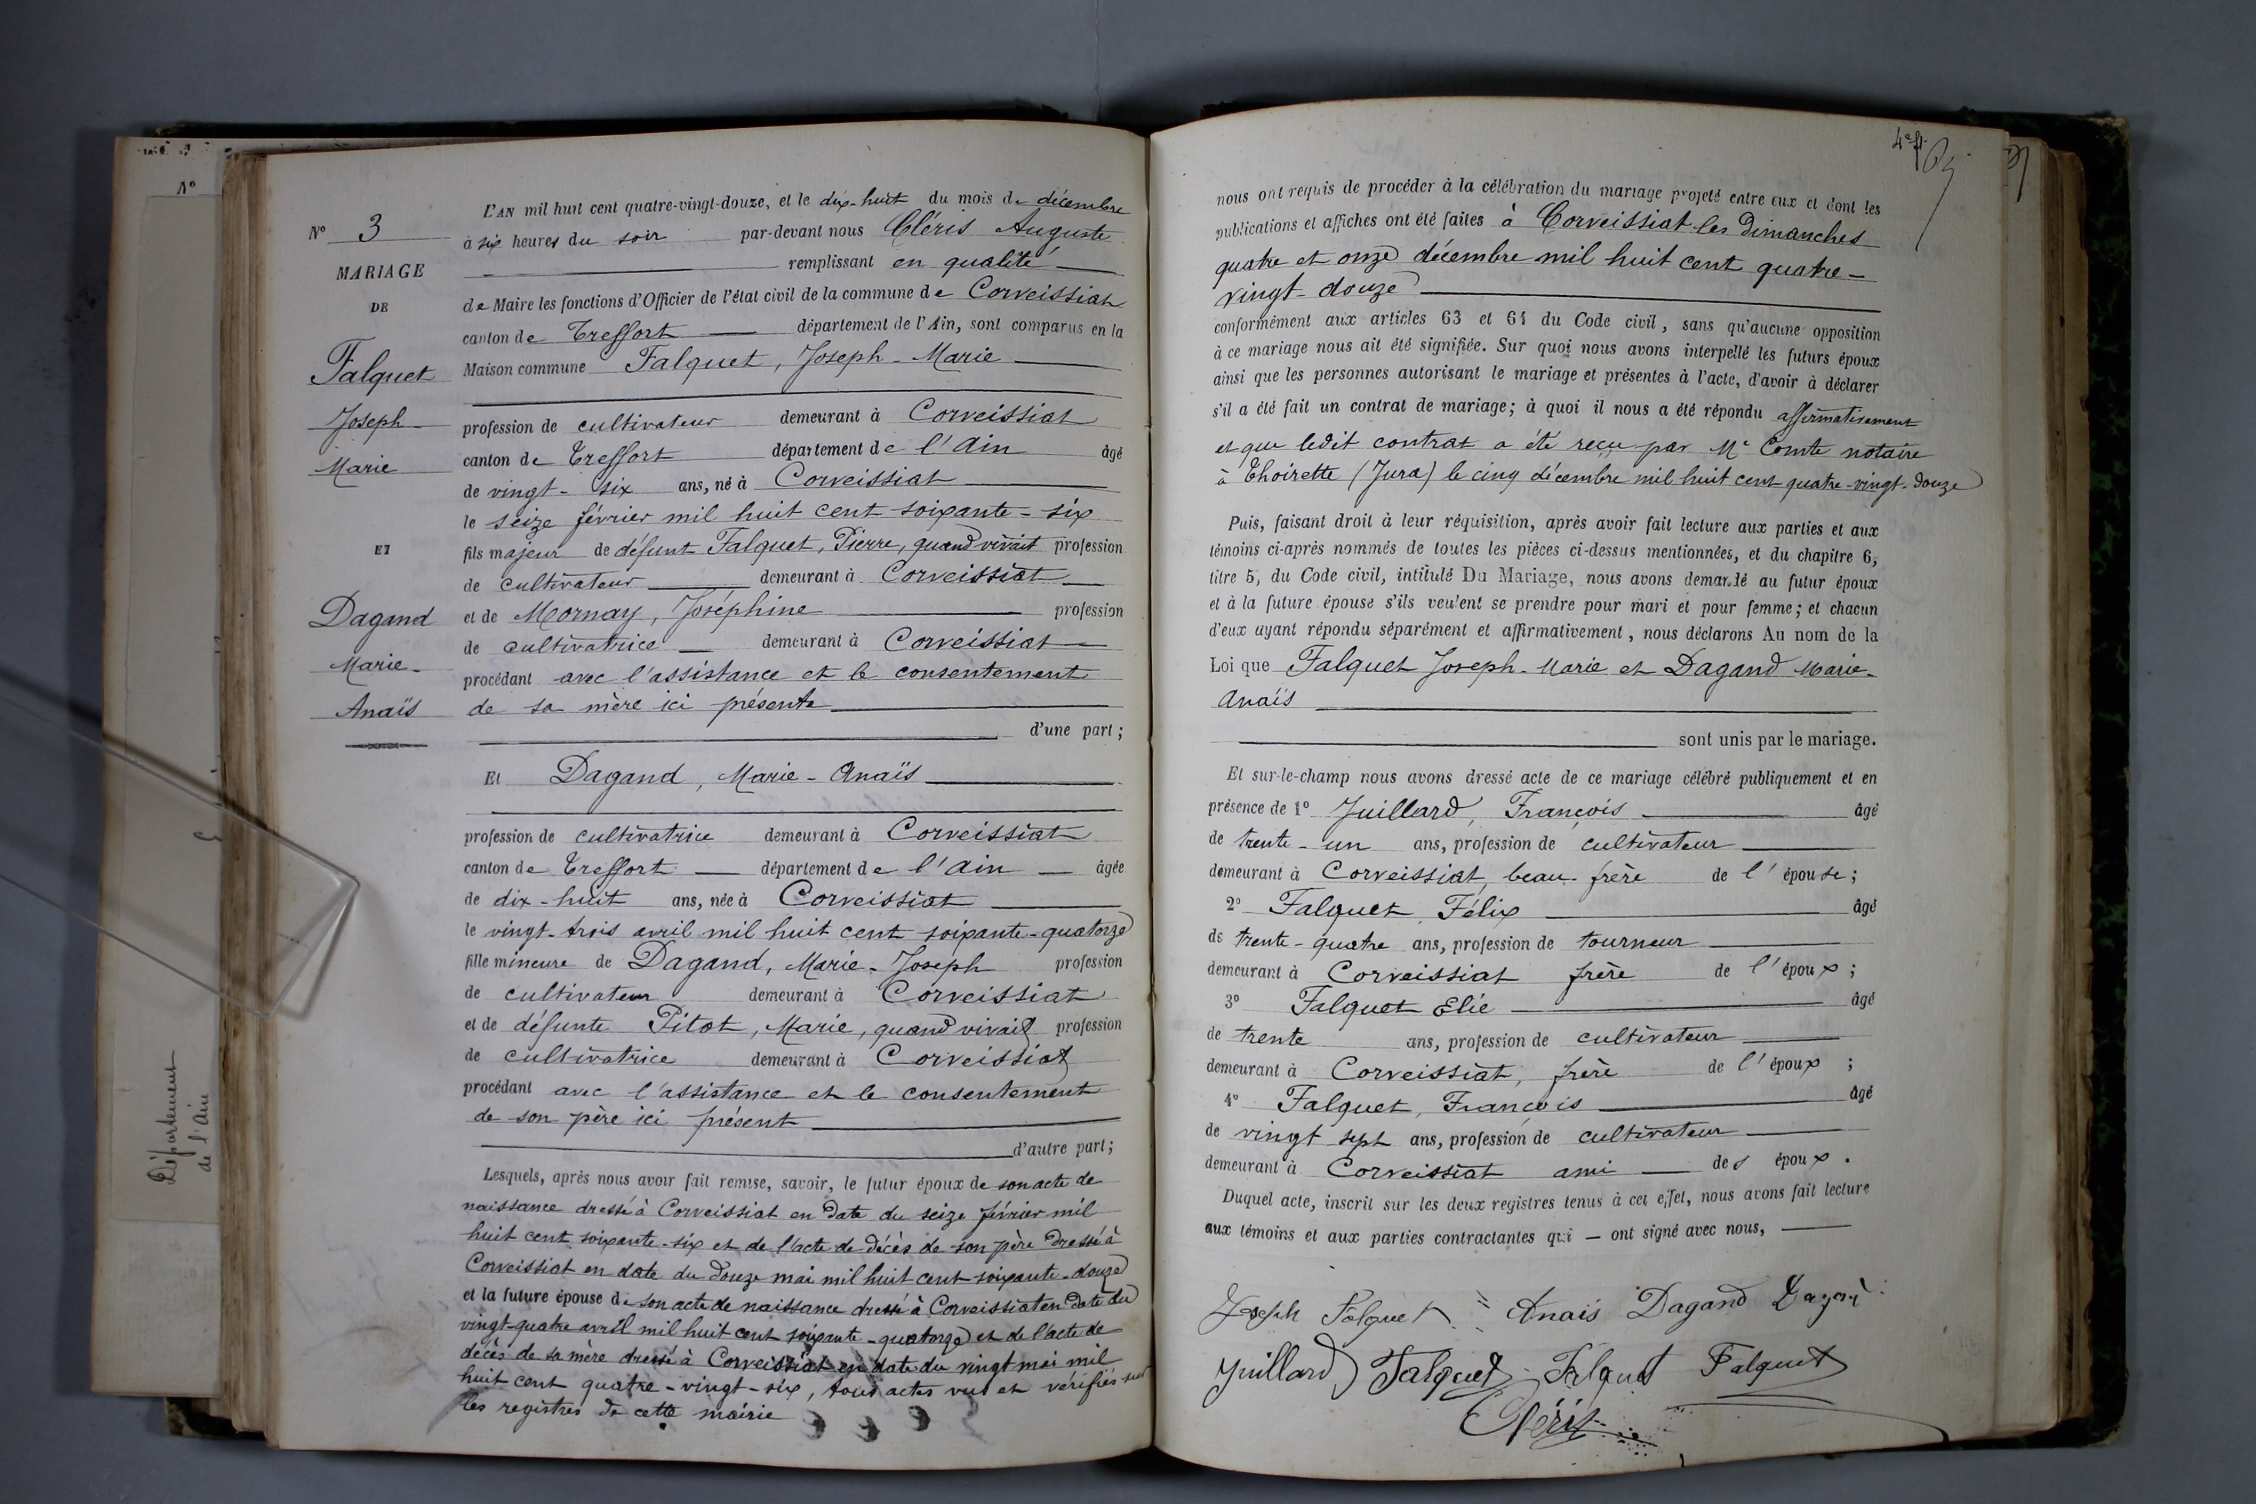 N°
Département
de l'Ain
N° 3
MARIAGE
DE
Falquet
Joseph
Marie
ET
Dagand
Marie-
Anaïs
L'AN mil huit cent quatre-vingt-douze, et le dix-huit du mois de décembre
à six heures du soir par-devant nous Cléris Auguste
remplissant en qualité
de Maire les fonctions d'Officier de l'état civil de la commune de Corveissiat
canton de Treffort département de l'Ain, sont comparus en la
Maison commune Falquet, Joseph-Marie
profession de cultivateur demeurant à Corveissiat
canton de Treffort département de l'Ain âgé
de vingt-six ans, né à Corveissiat
le seize février mil huit cent soixante-six
fils majeur de défunt Falquet, Pierre, quand vivait profession
de cultivateur demeurant à Corveissiat
et de Mornay, Joséphine profession
de cultivatrice demeurant à Corveissiat
procédant avec l'assistance et le consentement
de sa mère ici présente
d'une part;
Et Dagand, Marie-Anaïs
profession de cultivatrice demeurant à Corveissiat
canton de Treffort département de l'Ain âgée
de dix-huit ans, née à Corveissiat
le vingt-trois avril mil huit cent soixante-quatorze
fille mineure de Dagand, Marie-Joseph profession
de cultivateur demeurant à Corveissiat
et de défunte Pitot, Marie, quand vivait profession
de cultivatrice demeurant à Corveissiat
procédant avec l'assistance et le consentement
de son père ici présent
d'autre part;
Lesquels, après nous avoir fait remise, savoir, le futur époux de son acte de
naissance dressé à Corveissiat en date du seize février mil
huit cent soixante-six et de l'acte de décès de son père dressé à
Corveissiat en date du douze mai mil huit cent soixante-douze
et la future épouse de son acte de naissance dressé à Corveissiat en date du
vingt-quatre avril mil huit cent soixante-quatorze et de l'acte de
décès de sa mère dressé à Corveissiat en date du vingt mai mil
huit cent quatre-vingt-six, tous actes vus et vérifiés sur
les registres de cette mairie
nous ont requis de procéder à la célébration du mariage projeté entre eux et dont les
publications et affiches ont été faites à Corveissiat les Dimanches
quatre et onze décembre mil huit cent quatre-
vingt-douze
conformément aux articles 63 et 64 du Code civil, sans qu'aucune opposition
à ce mariage nous ait été signifiée. Sur quoi nous avons interpellé les futurs époux
ainsi que les personnes autorisant le mariage et présentes à l'acte, d'avoir à déclarer
s'il a été fait un contrat de mariage; à quoi il nous a été répondu affirmativement
et que ledit contrat a été reçu par Me Comte notaire
à Thoirette (Jura) le cinq décembre mil huit cent quatre-vingt-douze
Puis, faisant droit à leur réquisition, après avoir fait lecture aux parties et aux
témoins ci-après nommés de toutes les pièces ci-dessus mentionnées, et du chapitre 6,
titre 5, du Code civil, intitulé Du Mariage, nous avons demandé au futur époux
et à la future épouse s'ils veulent se prendre pour mari et pour femme; et chacun
d'eux ayant répondu séparément et affirmativement, nous déclarons Au nom de la
Loi que Falquet Joseph-Marie et Dagand Marie-
Anaïs
sont unis par le mariage.
Et sur-le-champ nous avons dressé acte de ce mariage célébré publiquement et en
présence de 1° Juillard, François âgé
de trente-un ans, profession de cultivateur
demeurant à Corveissiat, beau-frère de l'épouse;
2° Falquet, Félix âgé
de trente-quatre ans, profession de tourneur
demeurant à Corveissiat frère de l'époux;
3° Falquet Elie âgé
de trente ans, profession de cultivateur
demeurant à Corveissiat, frère de l'époux;
4° Falquet, François âgé
de vingt sept ans, profession de cultivateur
demeurant à Corveissiat ami des époux.
Duquel acte, inscrit sur les deux registres tenus à cet effet, nous avons fait lecture
aux témoins et aux parties contractantes qui - ont signé avec nous,
Joseph Falquet Anaïs Dagand Dagand
Juillard Falquet Falquet Falquet
Cléris